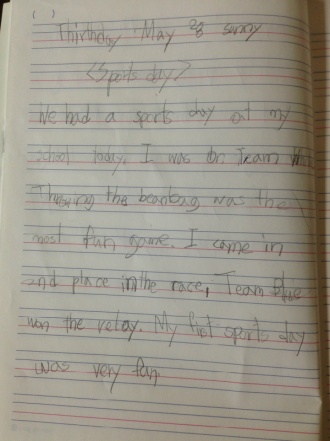 ( )
Thirthday May 28 sunny
<Sports day>
We had a sports day at my
school today. I was on Team
Throwing the beanbag was the
most fun game. I came in
2nd place in the race, Team Blue
won the relay. My first sports day
was very fun.